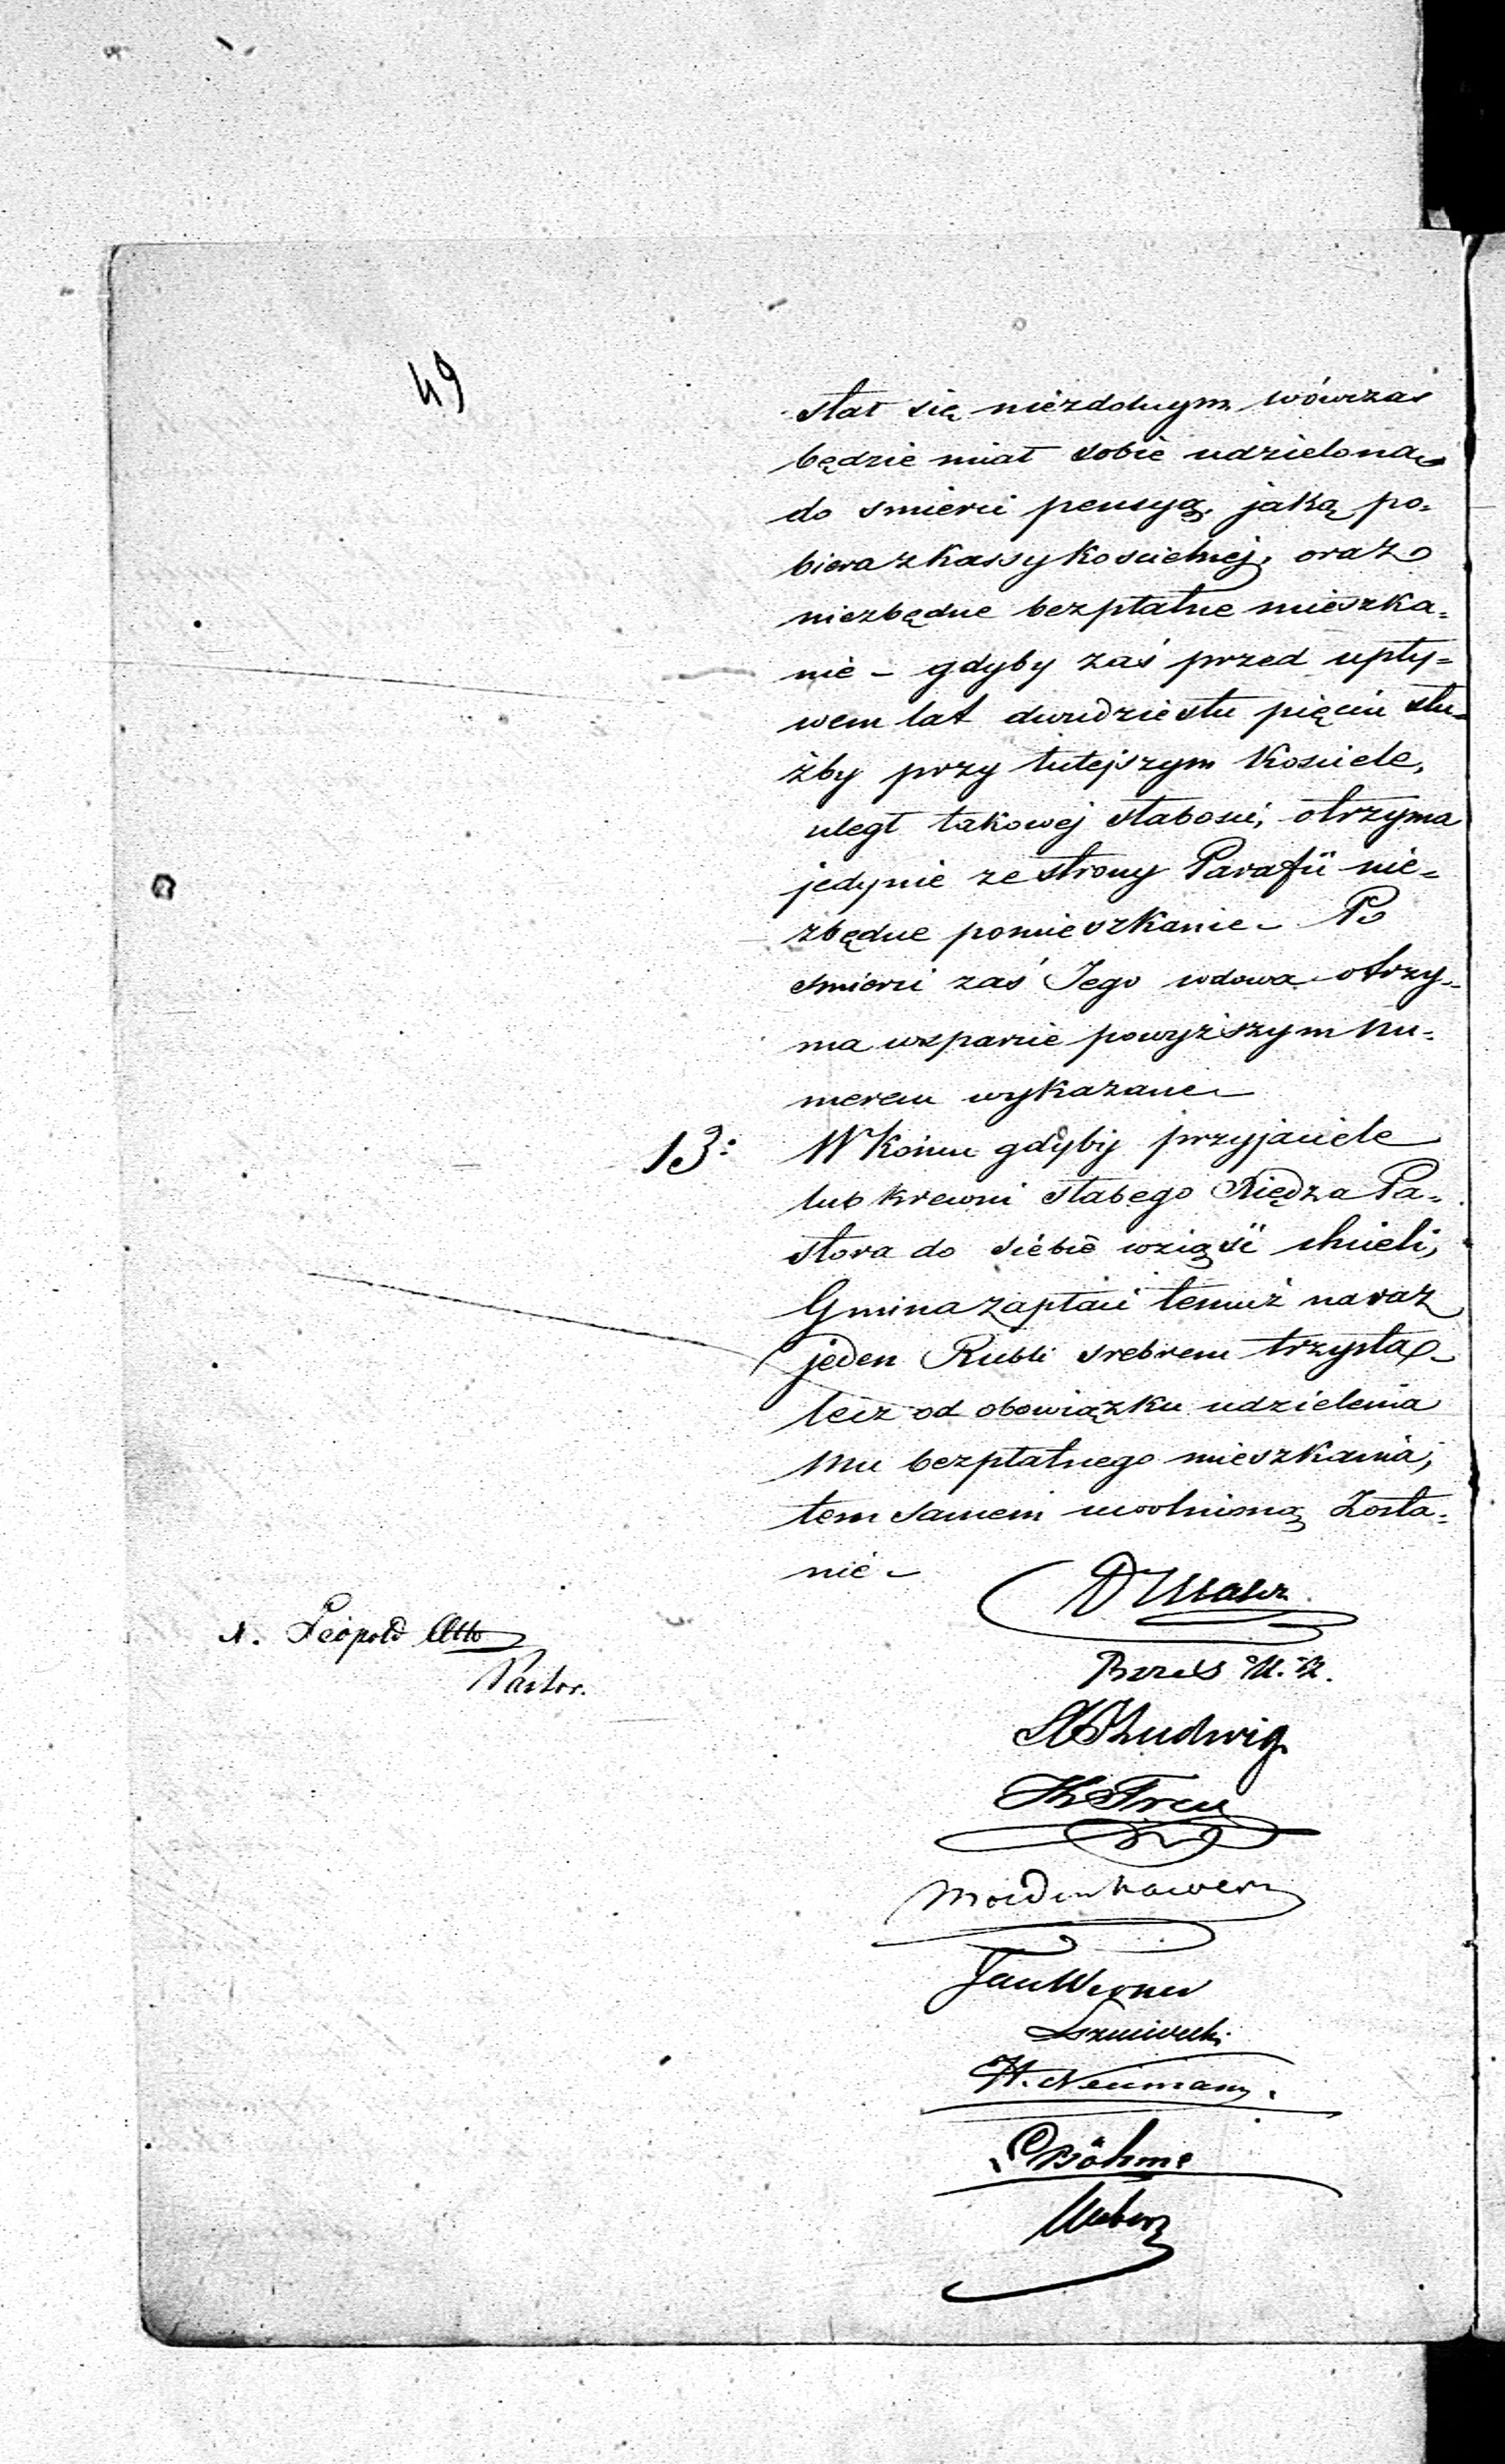 49
stał się niezdolnym wówczas
będzie miał sobie udzieloną
do smierci pensyą, jaką po=
biera z kassy kościelnej, oraz
niezbędne bezpłatne mieszka=
nie – gdyby zaś przed upły=
wem lat dwudziestu pięciu słu=
żby przy tutejszym Kosciele,
uległ takowej słabosci, otrzyma
jedynie ze strony Parafii nie=
zbędne pomieszkanie – Po
smierci zaś Jego wdowa otrzy=
ma wsparcie powyższym Nu=
merem wykazane –
13: W Końcu gdyby przyjaciele
lub krewni słabego Xiędza Pa=
stora do siebie wziąść chcieli,
Gmina zapłaci temuż na raz
jeden Rubli srebrem trzysta –
lecz od obowiązku udzielenia
Mu bezpłatnego mieszkania,
tem samem uwolnioną zosta=
nie –
Leopold Otto
Pastor.
Ludwig
Jan Werner
H. Neumann.
Böhme
Weber